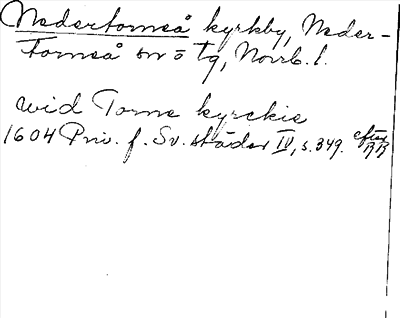 Nedertorneå kyrkby, Neder-
torneå sn o tg, Norrb. l.
wid Torne kyrckie
1604 Priv. f. Sv. städer IV, s. 349. efter RR